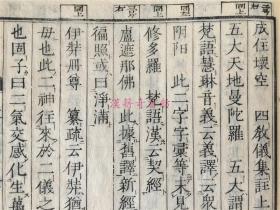 成住壞空 四教儀集註上
五大天地曼陀羅 五大謂
梵語慧琳音義云義譯云眾
阴阳 此二字字彙等未見
修多羅 梵語漢云契經
盧遮那佛 此據舊譯新經
徧照或曰淨滿
伊弉冊尊 纂疏云伊弉猶
毋也此二神往來於二儀之
也固子曰二氣交感化生萬